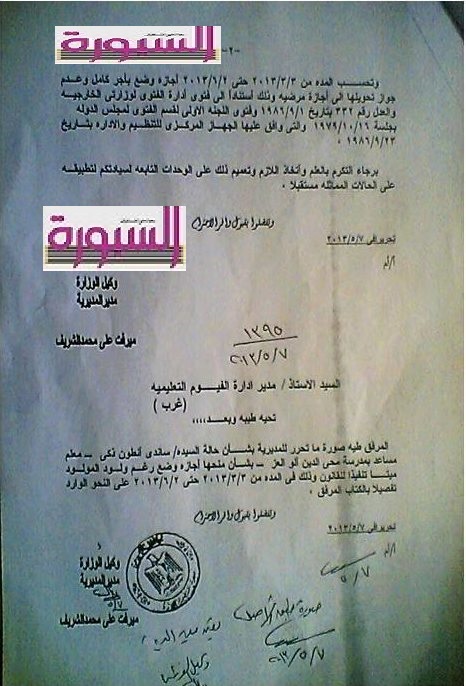 السبورة
-٢-
وتحسب المده من ٢٠١٣/٣/٣ حتى ٢٠١٣/٦/٢ أجازه وضع بأجر كامل وعدم
جواز تحويلها الى أجازة مرضيه وذلك أستناداً الى فتوى أدارة الفتوى لوزارتى الخارجيه
والعدل رقم ٣٣٢ بتاريخ ١٩٨٦/٩/١ وفتوى اللجنه الاولى لقسم الفتوى لمجلس الدوله
بجلسة ١٩٧٩/١٠/١٦ والتى وافق عليها الجهاز المركزى للتنظيم والاداره بتاريخ
١٩٨٦/٩/٢٣ .
برجاء التكرم بالعلم وأتخاذ اللازم وتعميم ذلك على الوحدات التابعه لسيادتكم لتطبيقه
على الحالات المماثله مستقبلا .
وتفضلوا بقبول وافر الاحترام
تحريرا فى ٢٠١٣/٥/٧
السبورة
وكيل الوزارة
مدير المديرية
ميرفت على محمد الشريف
١٣٩٥
٢٠١٣/٥/٧
السيد الاستاذ / مدير ادارة الفيوم التعليميه
(غرب)
تحيه طيبه وبعد،،،،
المرفق طيه صورة ما تحرر للمديرية بشأن حالة السيده/ ساندى أنطون زكى – معلم
مساعد بمدرسة محى الدين أبو العز – بشأن منحها أجازه وضع رغم ولود المولود
ميتا تنفيذا للقانون وذلك فى المده من ٢٠١٣/٣/٣ حتى ٢٠١٣/٦/٢ على النحو الوارد
تفصيلا بالكتاب المرفق .
وتفضلوا بقبول وافر الاحترام
تحريرا فى ٢٠١٣/٥/٧
وكيل الوزارة
مدير المديرية
ميرفت على محمد الشريف
٥/٧
صورة طبق الأصل
٢٠١٣/٥/٧